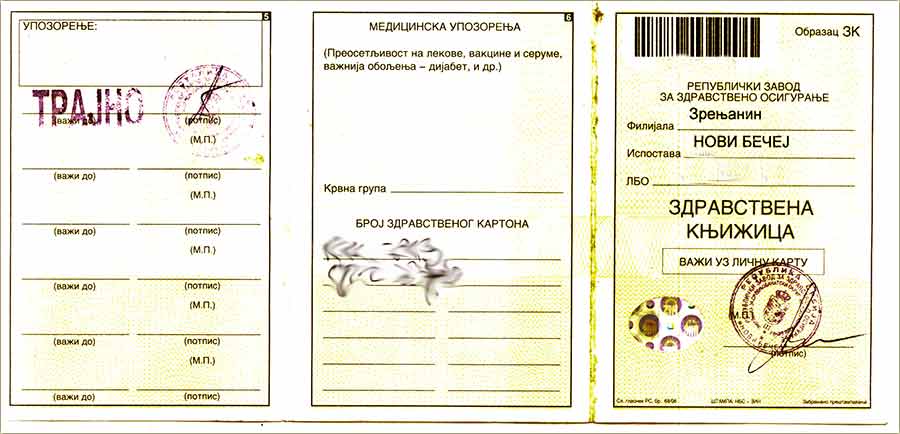 5
УПОЗОРЕЊЕ:
ТРАЈНО
(важи до) (потпис)
(М.П.)
(важи до) (потпис)
(М.П.)
(важи до) (потпис)
(М.П.)
(важи до) (потпис)
(М.П.)
(важи до) (потпис)
(М.П.)
(важи до) (потпис)
6
МЕДИЦИНСКА УПОЗОРЕЊА
(Преосетљивост на лекове, вакцине и серуме,
важнија обољења – дијабет, и др.)
Крвна група
БРОЈ ЗДРАВСТВЕНОГ КАРТОНА
Образац ЗК
РЕПУБЛИЧКИ ЗАВОД
ЗА ЗДРАВСТВЕНО ОСИГУРАЊЕ
Филијала Зрењанин
Испостава НОВИ БЕЧЕЈ
ЛБО
ЗДРАВСТВЕНА
КЊИЖИЦА
ВАЖИ УЗ ЛИЧНУ КАРТУ
РЕПУБЛИКА СРБИЈА
(М.П.)
(потпис)
Сл. гласник РС, бр. 68/06 ШТАМПА: НБС - ЗИН Забрањено прештампавање